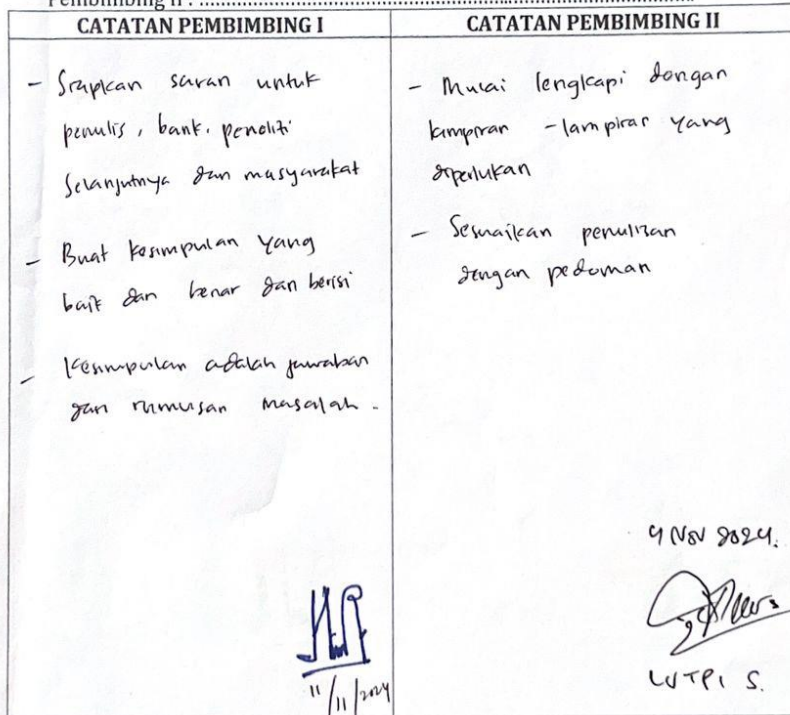 Pembimbing II : ........................................................................
CATATAN PEMBIMBING I
- Siapkan saran untuk
penulis, bank, peneliti
Selanjutnya dan masyarakat
- Buat kesimpulan yang
baik dan benar dan berisi
- Kesimpulan adalah jawaban
dari rumusan masalah.
11/11/2024
CATATAN PEMBIMBING II
- Mulai lengkapi dengan
lampiran - lampiran yang
diperlukan
- Sesuaikan penulisan
dengan pedoman
9 Nov 2024.
LUTPI S.